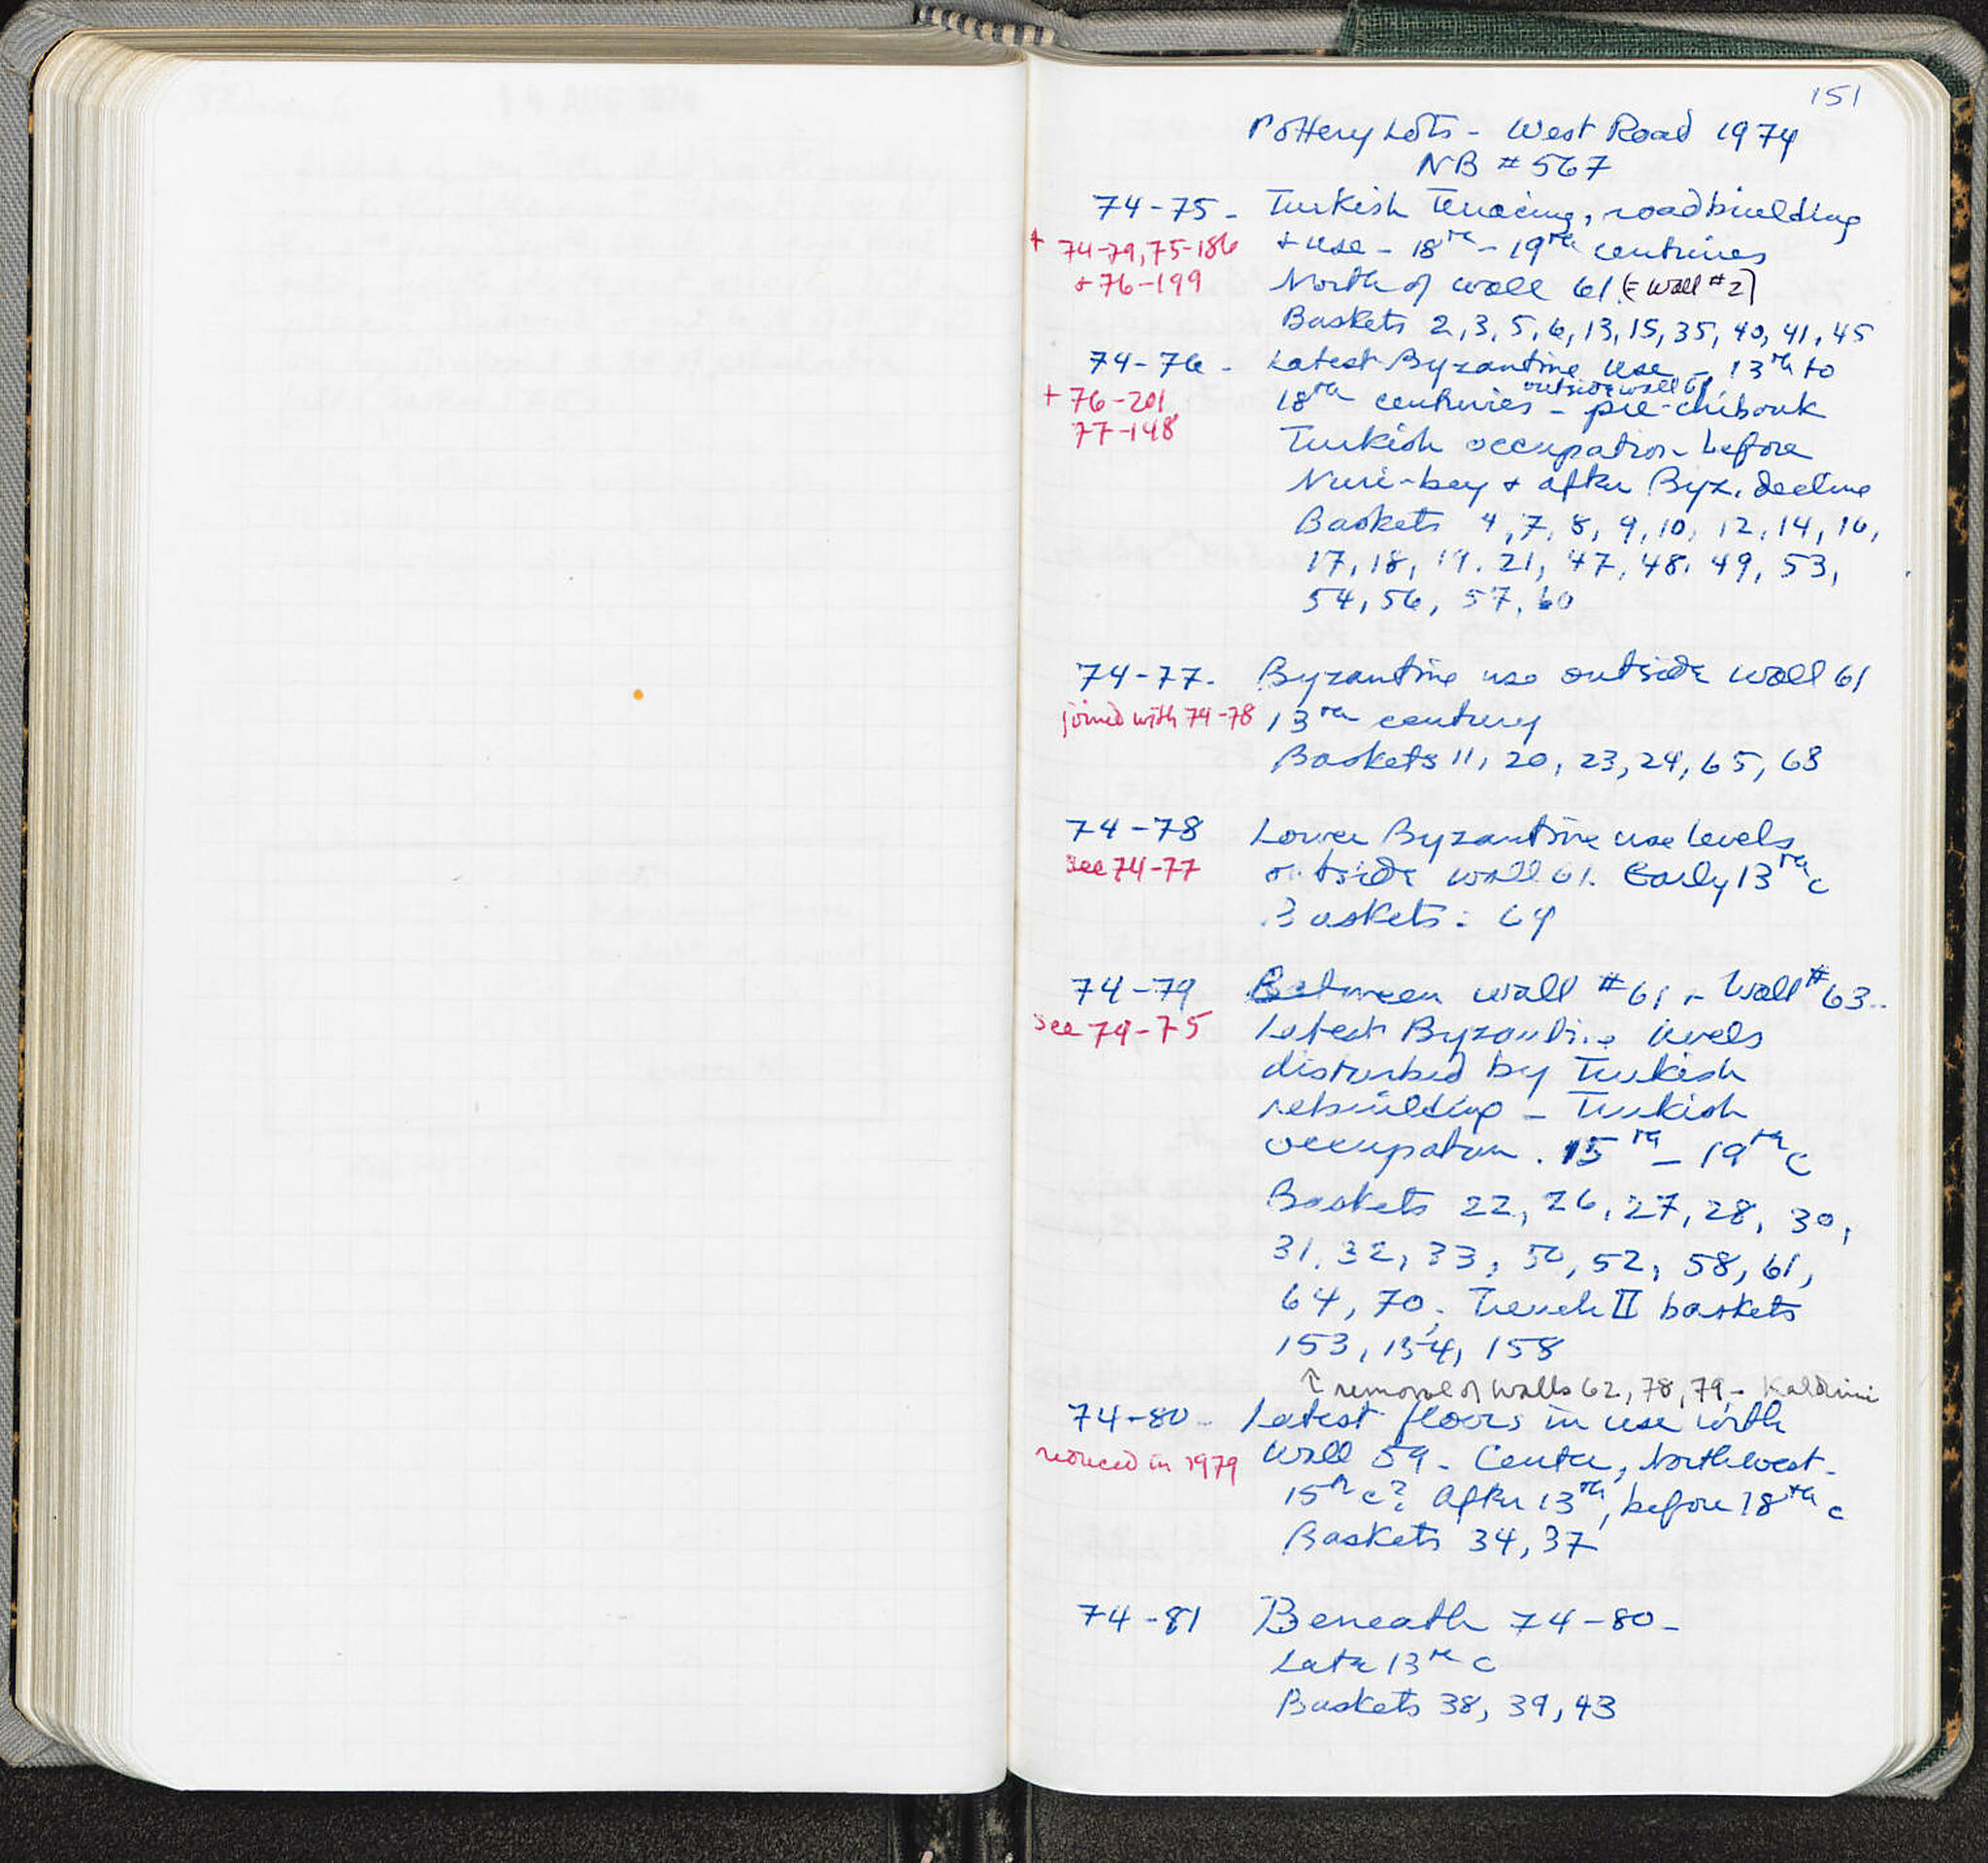 151
Pottery Lots - West Road 1974
NB # 567
74-75 - Turkish Terracing, roadbuilding
+ 74-79, 75-186 + use - 18th - 19th centuries
+ 76-199 North of wall 61 (= wall #2)
Baskets 2, 3, 5, 6, 13, 15, 35, 40, 41, 45
74-76 - Latest Byzantine use - 13th to
outside wall 61
+ 76-201 18th centuries - pre-chibouk
77-148 Turkish occupation before
Nuri-bey + after Byz. decline
Baskets 4, 7, 8, 9, 10, 12, 14, 16,
17, 18, 19, 21, 47, 48, 49, 53,
54, 56, 57, 60
74-77. Byzantine use outside wall 61
joined with 74-78 13th century
Baskets 11, 20, 23, 24, 65, 68
74-78 Lower Byzantine use levels
see 74-77 outside wall 61. Early 13th c
Baskets: 69
74-79 Between wall #61 + Wall #63..
see 74-75 Latest Byzantine levels
disturbed by Turkish
rebuilding - Turkish
occupation. 15th - 19th c
Baskets 22, 26, 27, 28, 30,
31, 32, 33, 50, 52, 58, 61,
64, 70; Trench II baskets
153, 154, 158
↑ removal of walls 62, 78, 79 - Kaldrimi
74-80 - Latest floors in use with
reduced in 1979 Wall 59 - Center, Northwest -
15th c? After 13th, before 18th c
Baskets 34, 37
74-81 Beneath 74-80 -
Late 13th c
Baskets 38, 39, 43